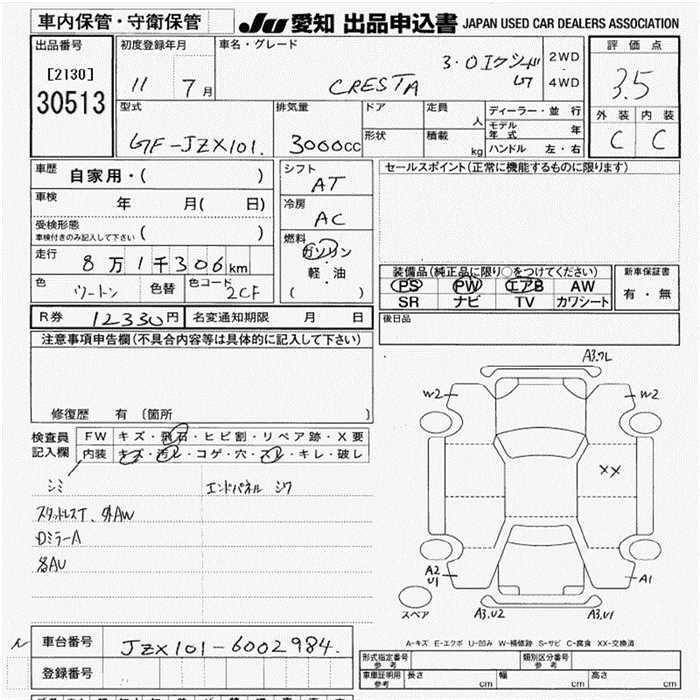 車内保管・守衛保管
JU 愛知 出品申込書 JAPAN USED CAR DEALERS ASSOCIATION
出品番号
[2130]
30513
初度登録年月
11 7月
車名・グレード
3.0エクシード
G
CRESTA
2WD
・
4WD
評価点
3.5
外装 内装
C C
型式
GF-JZX101.
排気量
3000cc
ドア
形状
定員
人
積載
kg
ディーラー・並行
モデル年式 年
ハンドル 左・右
車歴
自家用・( )
車検
年 月( 日)
受検形態
車検付きのみ記入して下さい ( )
走行
8万1千306km
色
ツートン
色替
色コード
2CF
シフト
AT
冷房
AC
燃料
ガソリン
・
軽・油
( )
セールスポイント(正常に機能するものに限ります)
装備品(純正品に限り○をつけてください)
PS PW エアB AW
SR ナビ TV カワシート
新車保証書
有・無
R券 12330円
名変通知期限 月 日
後日品
注意事項申告欄(不具合内容等は具体的に記入して下さい)
修復歴 有 〔箇所 〕
検査員
記入欄
FW キズ・飛石・ヒビ割・リペア跡・X要
内装 キズ・汚レ・コゲ・穴・スレ・キレ・破レ
シミ エンドパネル シワ
スタッドレスT、外AW
Dミラーム
A3.フL
W2
W2
XX
A2
U1
A1
スペア
A3.U2
A3.U1
A-キズ E-エクボ U-凹み W-補修跡 S-サビ C-腐食 XX-交換済
車台番号
JZX101-6002984.
登録番号
形式指定番号
参考
類別区分番号
参考
車庫証明用
参考
長さ cm
幅 cm
高さ cm